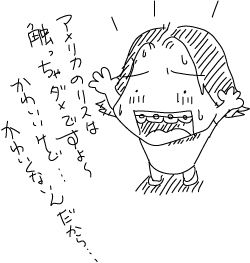 アメリカのリスは
触っちゃダメですよ〜
かわいいけど…
かわいくないんだから…、